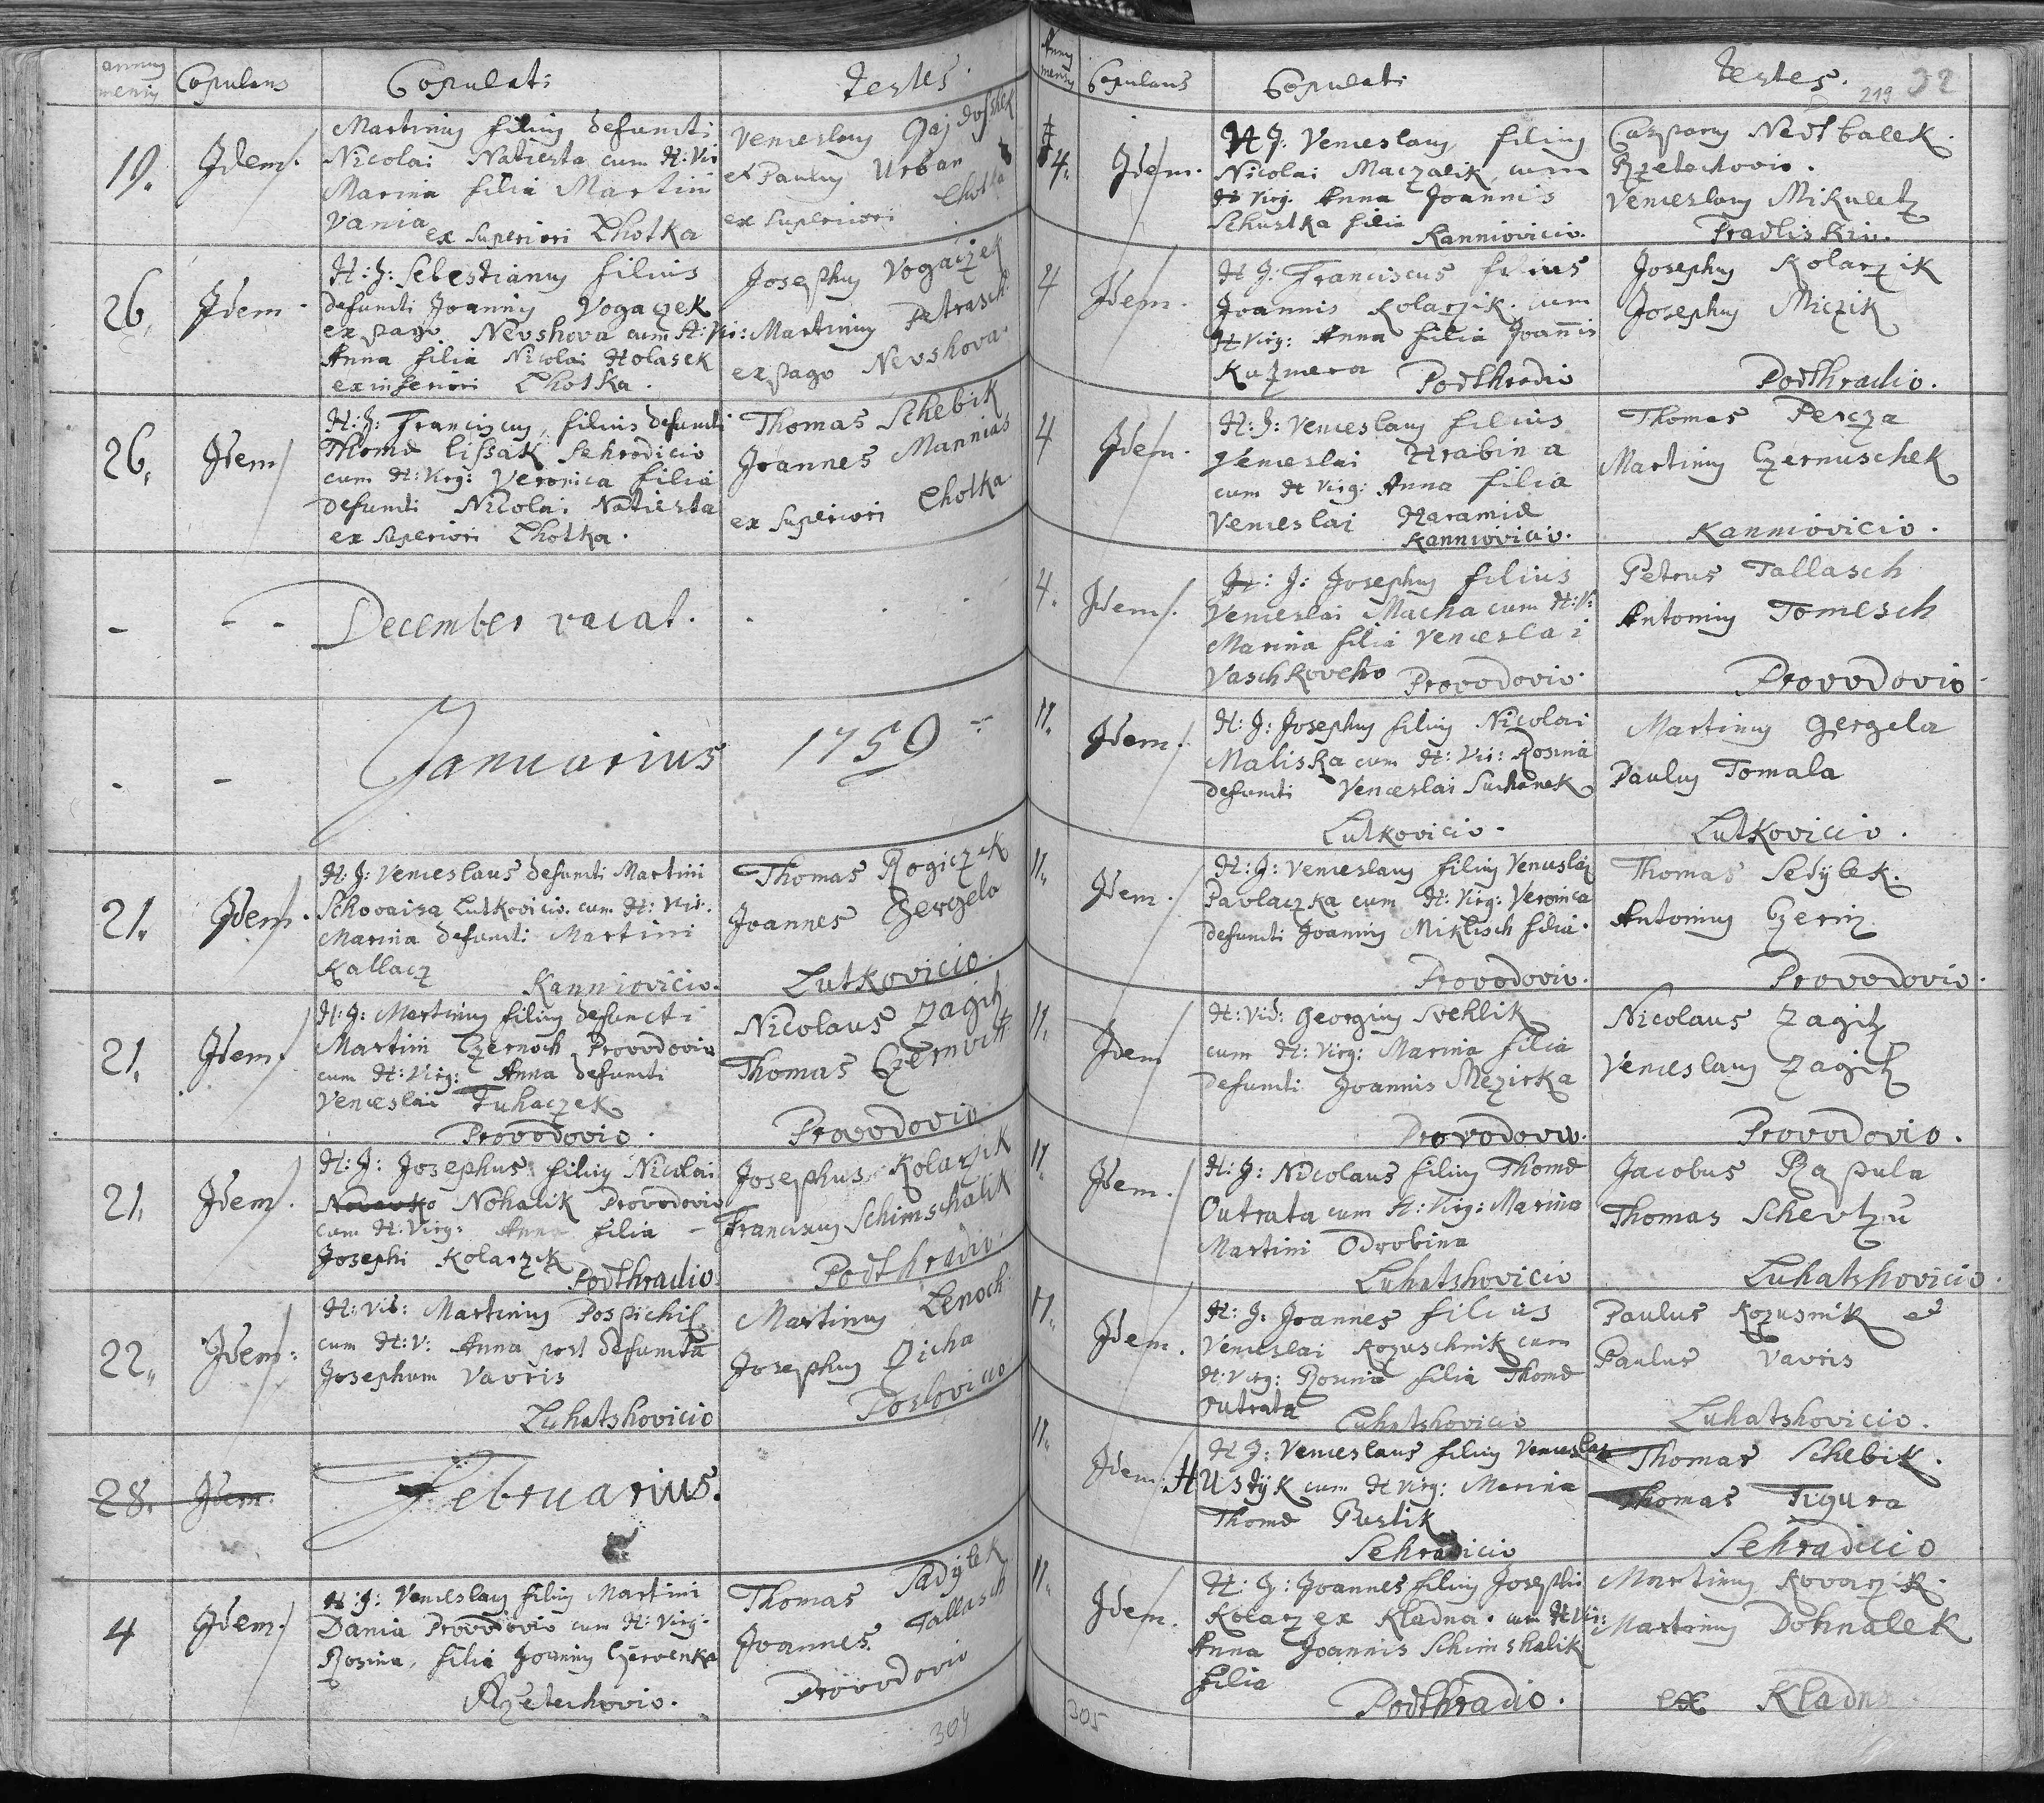 annus mensis Copulans Copulati Testes.
19. Idem. Martinus filius defuncti
Nicolai Natiesta cum H: Vir
Marina filia Martin
Vania ex superiori Lhotka
Venceslaus Gajdossek
et Paulus Urban
ex superiori Lhotka
26. Idem. H: J: Sebestianus filius
defuncti Joannis Vogaczek
ex pago Nevshova cum H: Vir:
Anna filia Nicolai Holasek
ex inferiori Lhotka.
Josephus Vogaczek
Martinus Petrasch
ex pago Nevshova
26. Idem H: J: Franciscus, filius defuncti
Thomæ Lissak Sehrodicio
cum H: Virg: Veronica filia
defuncti Nicolai Natiesta
ex Superiori Lhotka.
Thomas Schebik
Joannes Mannias
ex Superiori Lhotka
December vacat.
Januarius 1759
21. Idem. H: J: Venceslaus defuncti Martini
Schovaisa Lutkovicio. cum H: Vir.
Marina defuncti Martini
Kallacz Kanniovicio.
Thomas Rogiczek
Joannes Gergela
Lutkovicio.
21. Idem. H: J: Martinus filius defuncti
Martini Czernoch Provodovio
cum H: Virg: Anna defuncti
Venceslai Fuhaczek
Provodovio.
Nicolaus Zagitz
Thomas Czernoch
Provodovio
21. Idem. H: J: Josephus filius Nicolai
Nohalik Provodovio
cum H: Virg: Anna filia
Josephi Kolarzek Podhradio
Josephus Kolarzik
Franciscus Schimschalik
Podhradio.
22. Idem: H: Vid: Martinus Pospichil
cum H: V: Anna post defunctu
Josephum Vavris
Luhatshovicio
Martinus Lenoch
Josephus Dicha
Poslovicio
28. Idem. Februarius.
4 Idem. H: J: Venceslaus filius Martini
Dania Provodovio cum H: Virg:
Rosina, filia Joannis Czervenka
Rzetechovio.
Thomas Sadÿlek
Joannes Tallasch
Provodovio
304
Annus mensis Copulans Copulati Testes. 219 32
4. Idem. H J: Venceslaus filius
Nicolai Maczalik, cum
H Virg. Anna Joannis
Schustka filia Kanniovicio.
Casparus Nedbalek.
Rzetechovio.
Venceslaus Mikuletz
Pradliskiu.
4 Idem. H J: Franciscus filius
Joannis Kolarzik. cum
H Virg: Anna filia Joannis
Kuzmera Podhradio
Josephus Kolarzik
Josephus Miczik
Podhradio.
4 Idem. H: J: Venceslaus filius
Venceslai Hrabina
cum H Virg: Anna filia
Venceslai Haramiæ
Kanniovicio.
Thomas Percza
Martinus Czernuschek
Kanniovicio.
4. Idem. H: J: Josephus filius
Venceslai Macha cum H: V:
Marina filia Venceslai
Vaschkoveho Provodovio.
Petrus Tallasch
Antonius Tomesch
Provodovio
11. Idem. H: J: Josephus filius Nicolai
Maliska cum H: Vir: Rosina
defuncti Venceslai Suchanek
Lutkovicio.
Martinus Gergela
Paulus Tomala
Lutkovicio.
11. Idem. H: J: Venceslaus filius Venceslai
Pavlaczka cum H: Virg: Veronica
defuncti Joannis Miklisch filia.
Provodovio.
Thomas Sedÿlek.
Antonius Czerny
Provodovio.
11. Idem H: Vid: Georgius Svehlik
cum H: Virg: Marina filia
defuncti Joannis Mezirka
Provodovio.
Nicolaus Zagitz
Venceslaus Zagitz
Provodovio.
11. Idem. H: J: Nicolaus filius Thomæ
Outrata cum H: Virg: Marina
Martini Odrobina
Luhatshovicio
Jacobus Rapula
Thomas Schevtzu
Luhatshovicio.
11. Idem. H: J: Joannes filius
Venceslai Kozuschnik cum
H: Virg: Rosina filia Thomæ
Outrata Luhatshovicio
Paulus Kozusnik et
Paulus Vavris
Luhatshovicio.
11. Idem. H J: Venceslaus filius Venceslai
Hustÿk cum H Virg: Marina
Thomæ Rustik
Sehradicio
Thomas Schebik.
Thomas Figura
Sehradicio
11. Idem. H: J: Joannes filius Josephi
Kolarz ex Kladna. cum H Vir:
Anna Joannis Schimshalik
filia Podhradio.
Martinus Kovarzik.
Martinus Dohnalek
ex Kladna.
305